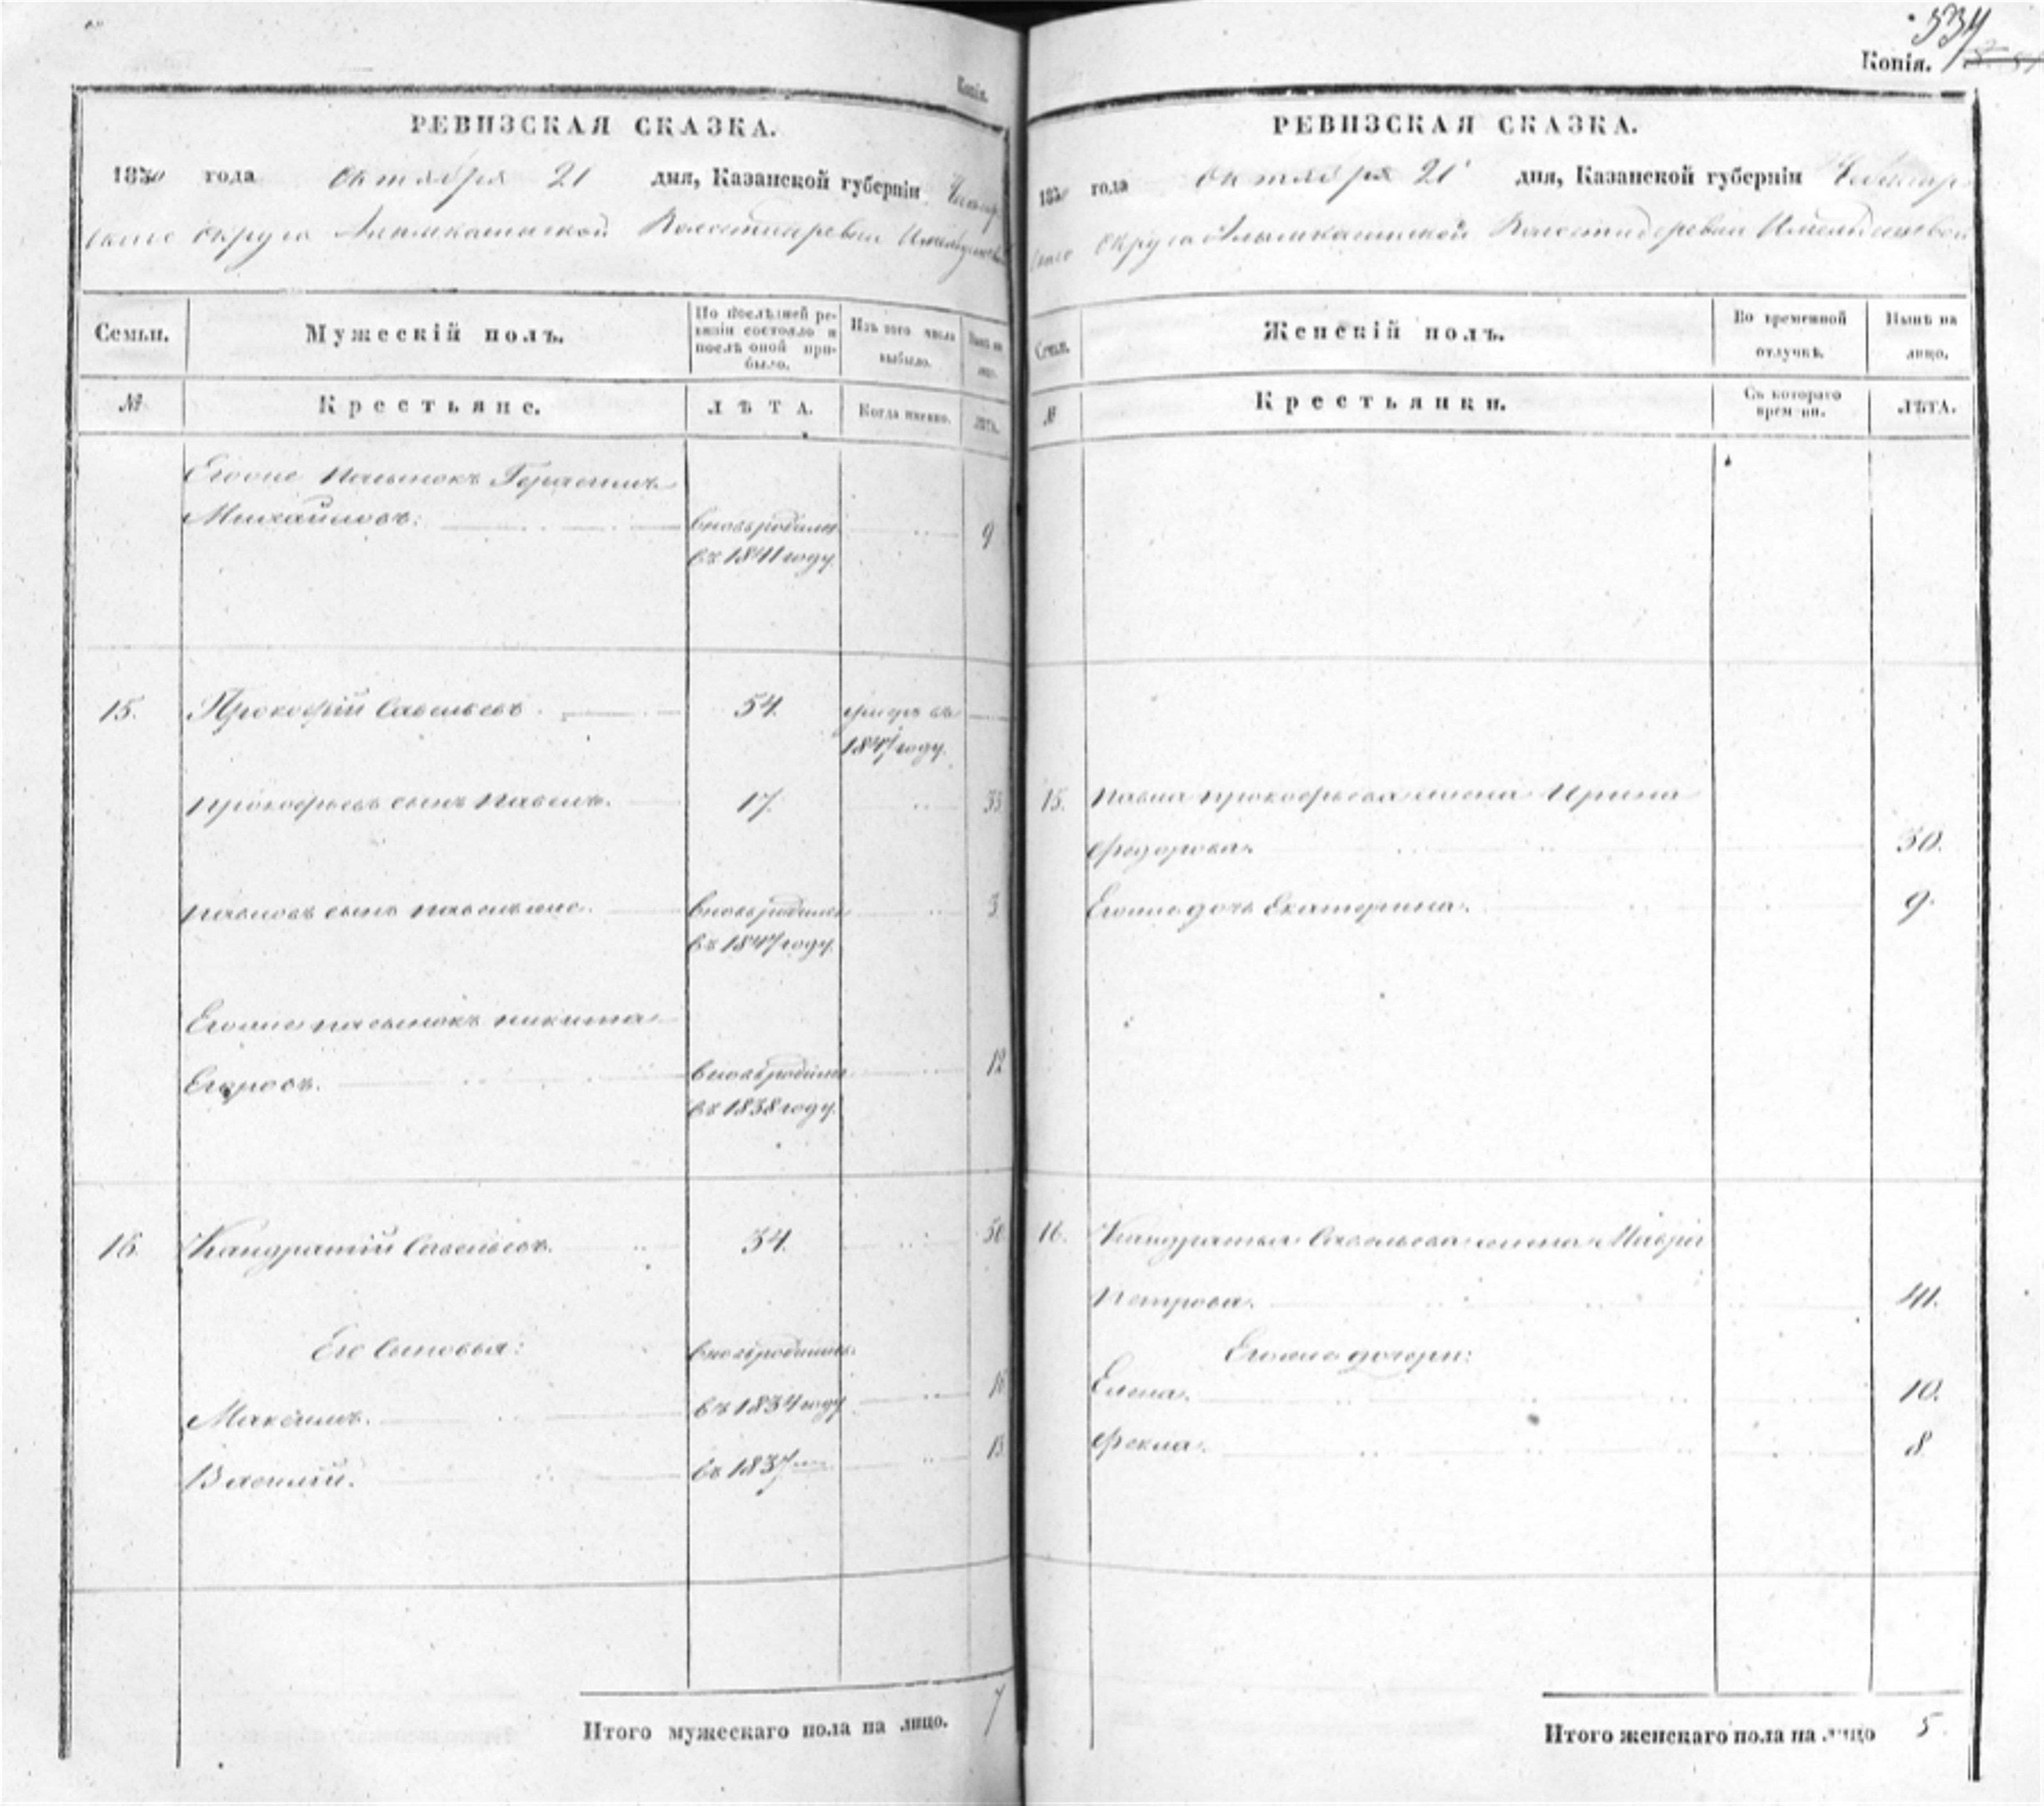 Копія.
РЕВИЗСКАЯ СКАЗКА.
1850 года Октября 21 дня, Казанской губерніи
скаго округа Волости деревни
Семьи.
Мужескій полъ.
По послѣдней ре-
визіи состояло и
послѣ оной при-
было.
Изъ того числа
выбыло.
Нынѣ на
лицо.
№
Крестьяне.
ЛѢТА.
Когда именно.
ЛѢТА.
Егоже пасынокъ Герасимъ
Михайловъ: вновьродился 9
въ 1841 году
15. Прокофій Савельевъ. 54. умеръ въ
1847 году.
Прокофьевъ сынъ Павелъ. 17. 33
Павловъ сынъ вновьродился 3
въ 1847 году.
Егоже пасынокъ Никита
Егоровъ. вновьродился 12
въ 1838 году.
16. Кандратій Савельевъ. 34. 50
Его сыновья: вновьродились
Максимъ. въ 1834 году 16
Василій. въ 1837 13
Итого мужескаго пола на лицо. 7
334
Копія.
РЕВИЗСКАЯ СКАЗКА.
1850 года Октября 21 дня, Казанской губерніи Чебоксар-
скаго округа Волости деревни
Семьи.
Женскій полъ.
Во временной
отлучкѣ.
Нынѣ на
лицо.
№
Крестьянки.
Съ котораго
времени.
ЛѢТА.
15. Павла Прокофьева жена Ирина
Федорова. 30.
Егоже дочь Екатерина. 9.
16. Кандратья Савельева жена Мавра
Петрова. 41.
Егоже дочери:
Елена. 10.
Фекла. 8
Итого женскаго пола на лицо 5.